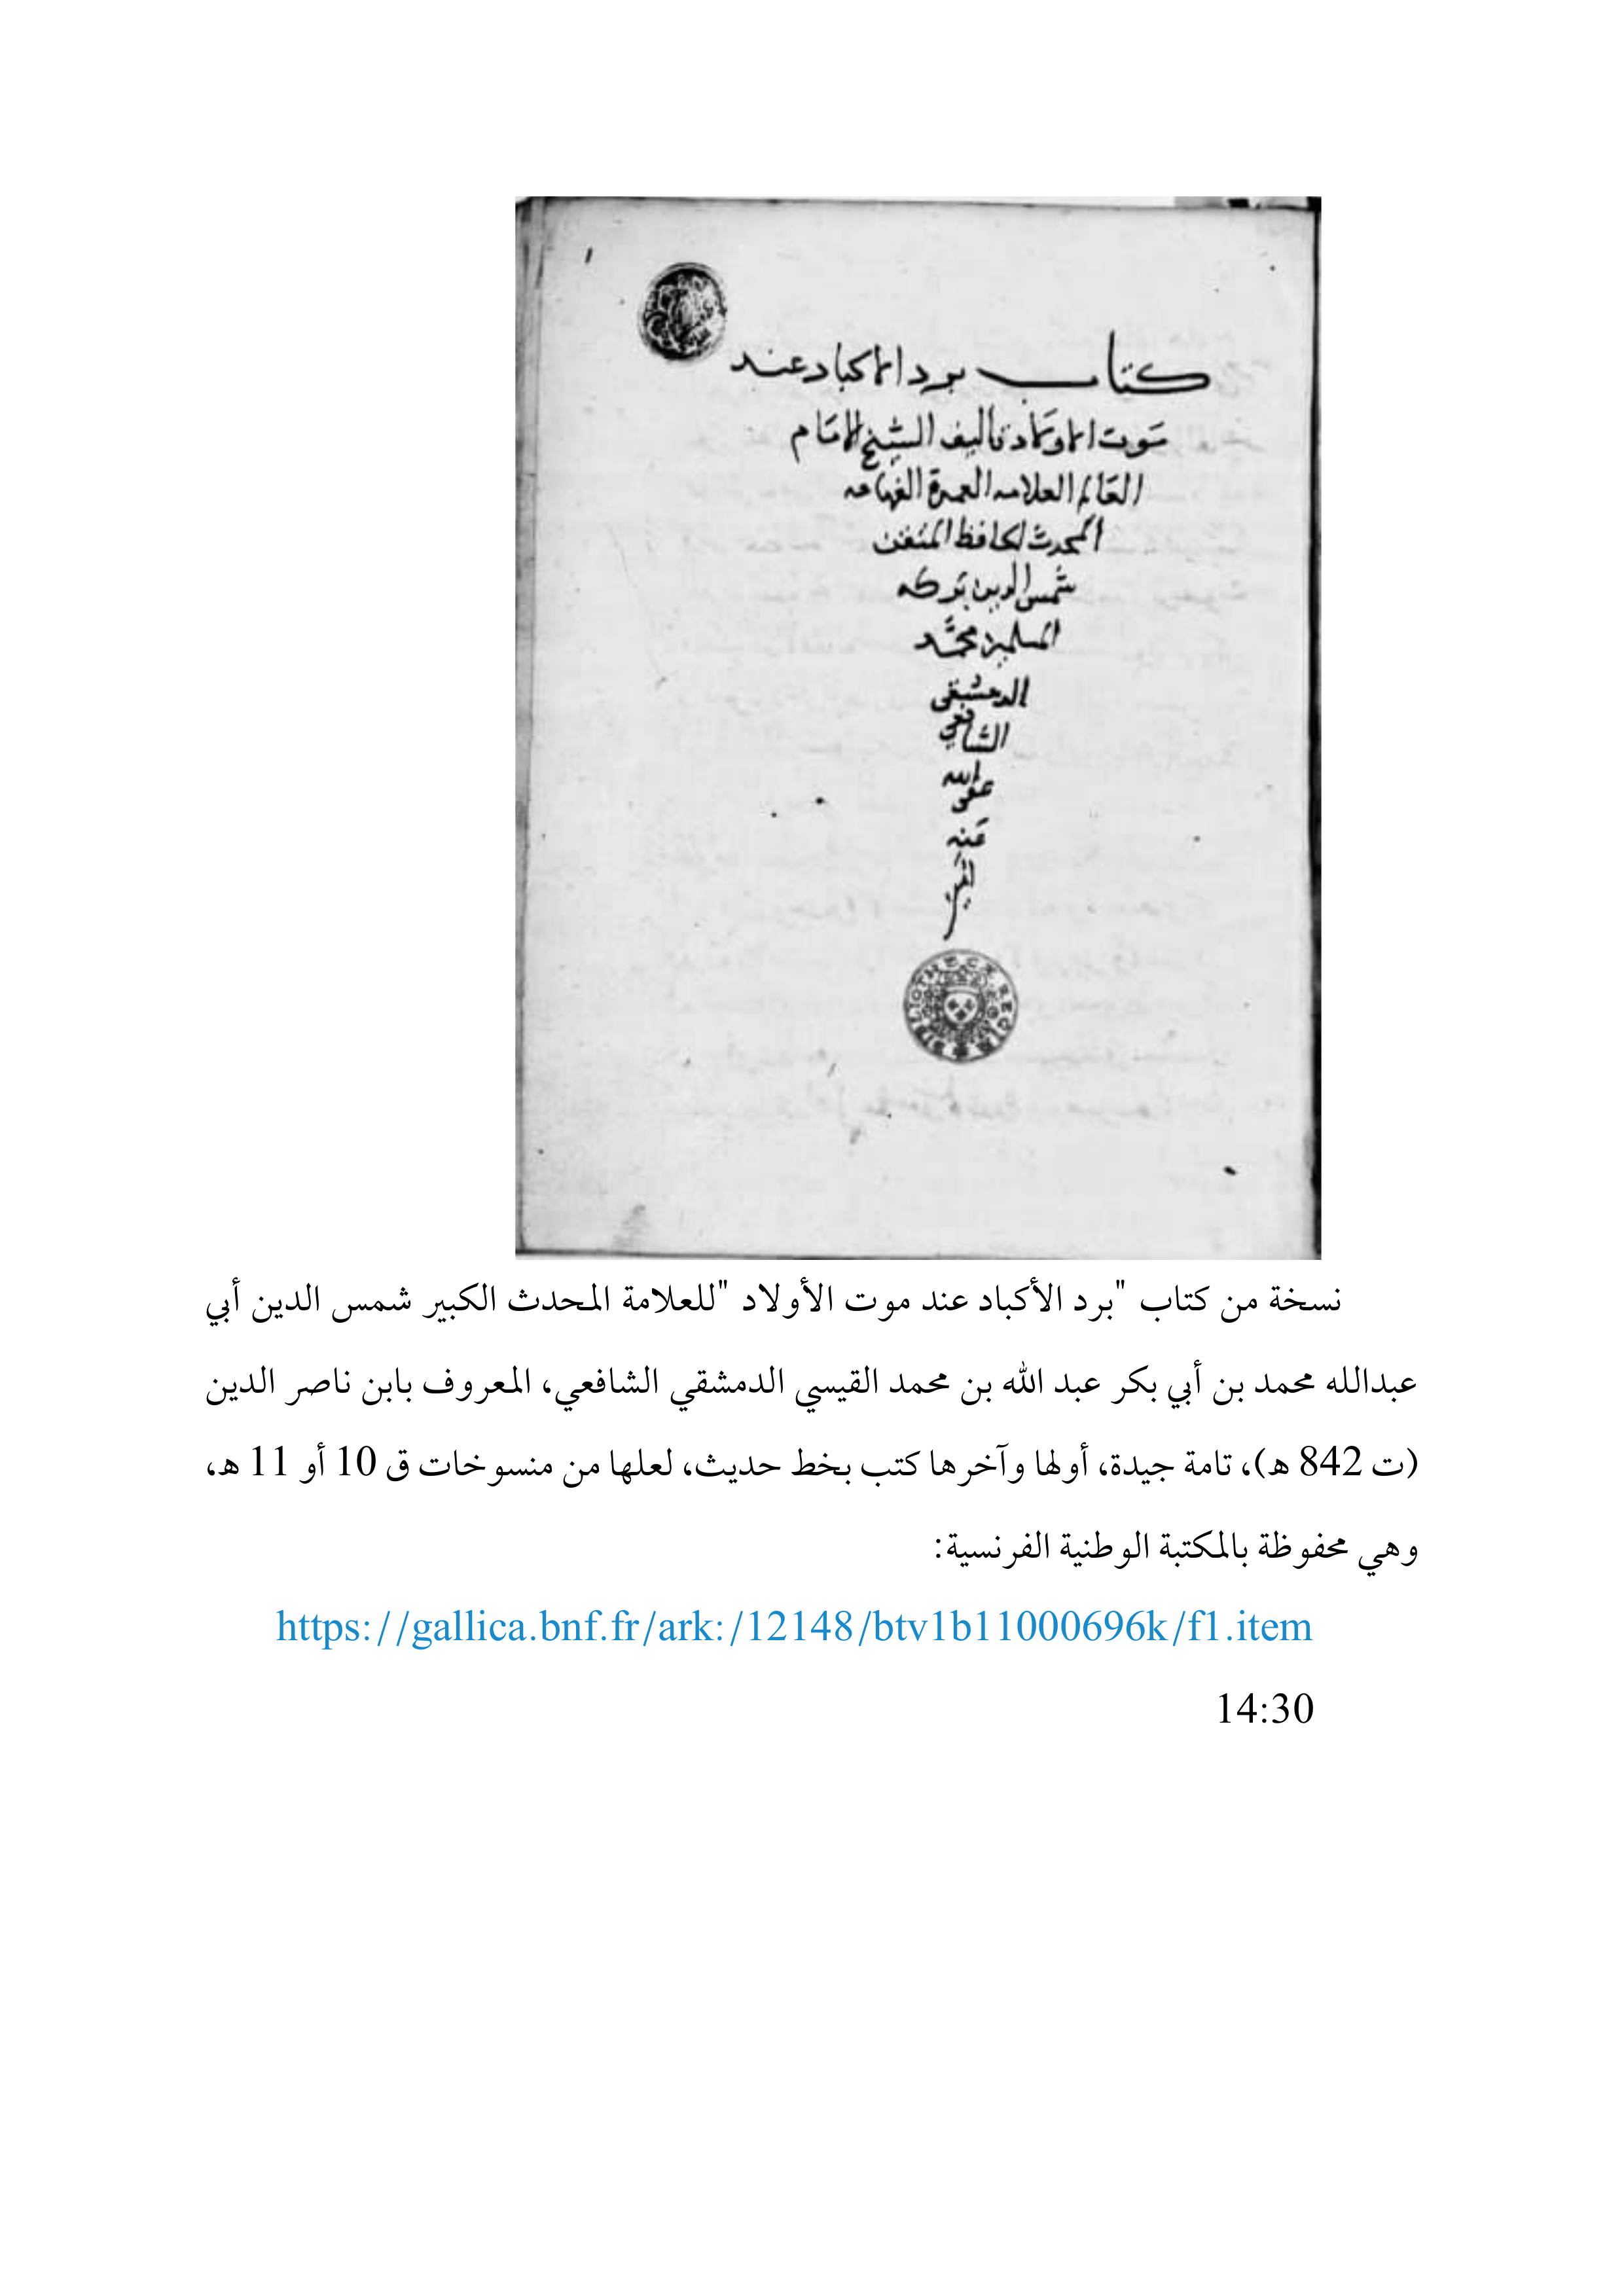 كتاب برد الاكباد عند
موت الاولاد تاليف الشيخ الامام
العالم العلامه العمدة الفهامه
المحدث الحافظ المتقن
شمس الدين بركه
المسلمين محمد
الدمشقي
الشافعي
عفى الله
عنه
امين
BIBLIOTHECÆ REGIÆ
نسخة من كتاب "برد الأكباد عند موت الأولاد "للعلامة المحدث الكبير شمس الدين أبي
عبدالله محمد بن أبي بكر عبد الله بن محمد القيسي الدمشقي الشافعي، المعروف بابن ناصر الدين
(ت 842 ه)، تامة جيدة، أولها وآخرها كتب بخط حديث، لعلها من منسوخات ق 10 أو 11 ه،
وهي محفوظة بالمكتبة الوطنية الفرنسية:
https://gallica.bnf.fr/ark:/12148/btv1b11000696k/f1.item
14:30